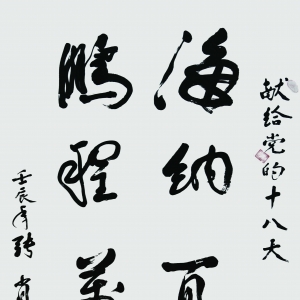 献给党的十八大
海纳百
鹏程萬
壬辰年